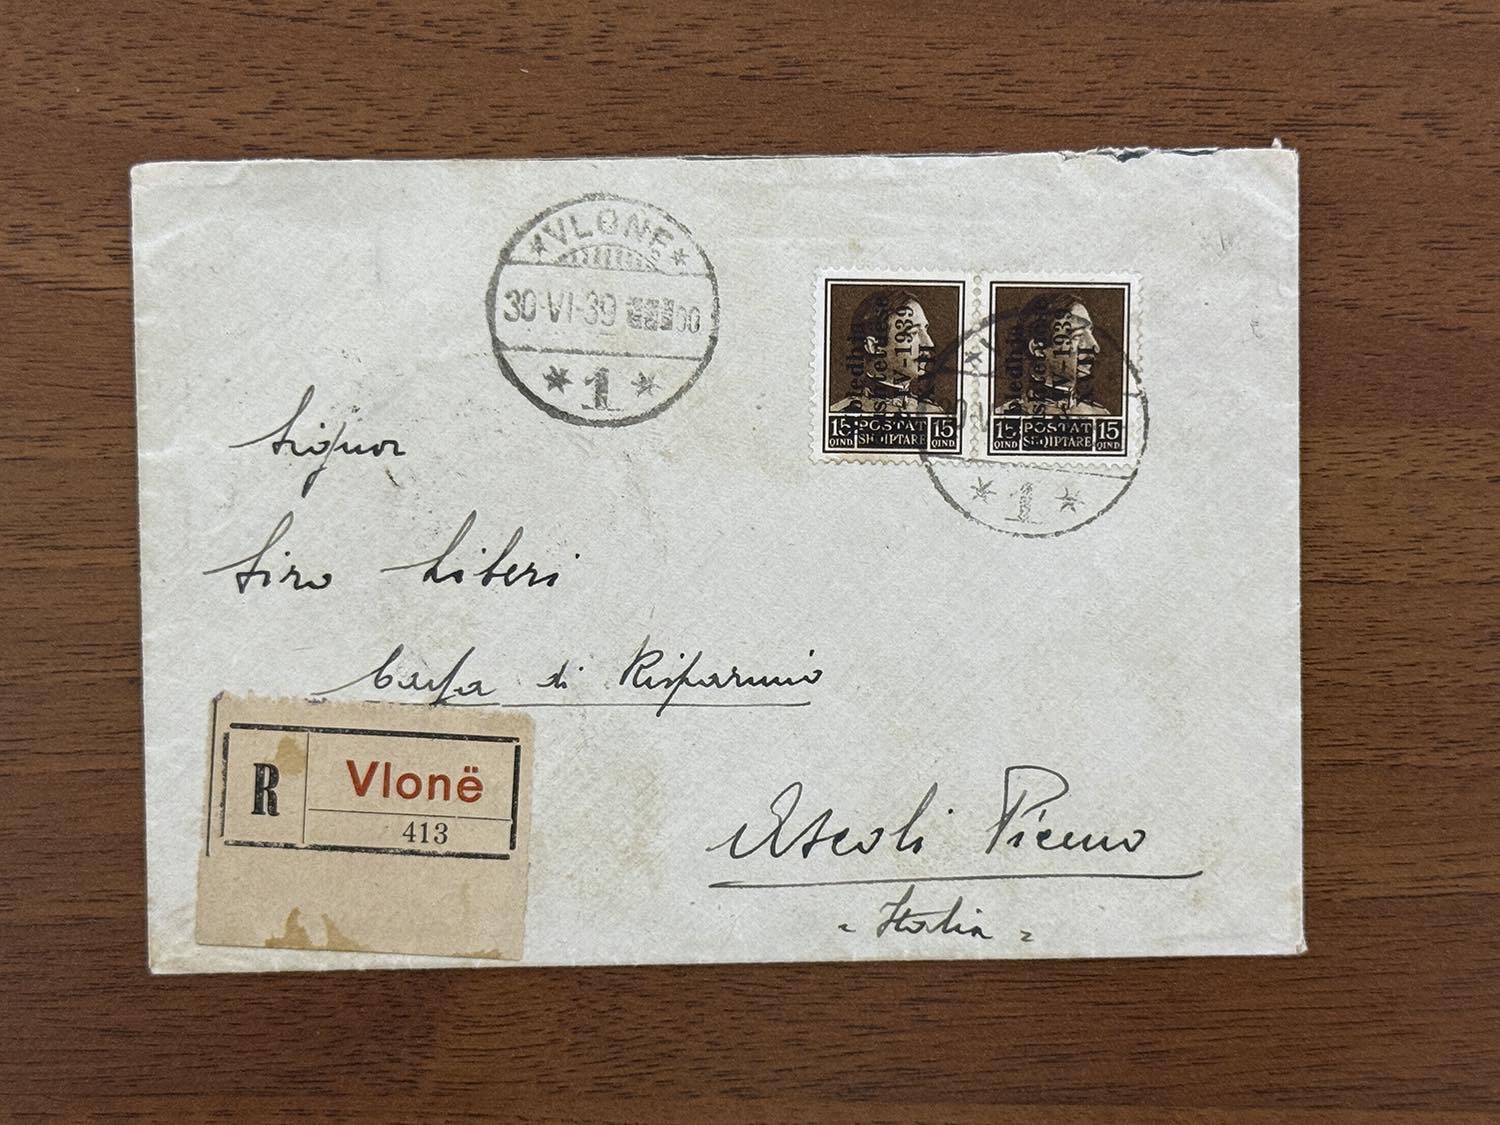 VLONE
30·VI·39 00
1
Mbledhja
kushtetuese
12-IV-1939
XVII
15 POSTAT 15
QIND. SHQIPTARE QIND.
Mbledhja
kushtetuese
12-IV-1939
XVII
15 POSTAT 15
QIND. SHQIPTARE QIND.
1
Signor
Siro Liberi
Cassa di Risparmio
R Vlonë
413
Ascoli Piceno
- Italia -